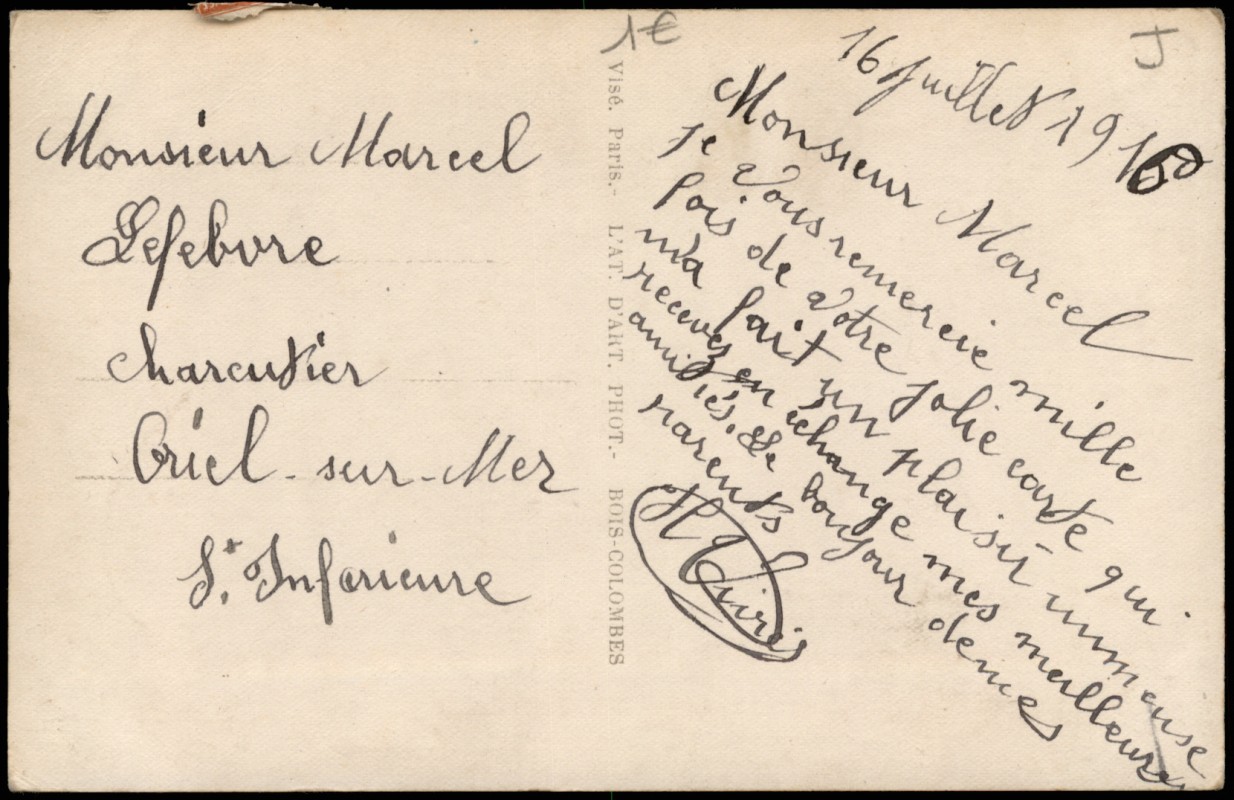 Monsieur Marcel
Lefebvre
charcutier
Criel-sur-Mer
St. Inferieure
1€
Visé. Paris.- L'AT. D'ART. PHOT.- BOIS-COLOMBES
J
16 juillet 19
Monsieur Marcel
je vous remercie mille
fois de votre jolie carte qui
m'a fait un plaisir immense
recevez en échange mes meilleures
amitiés. Le bonjour de mes
parents
H